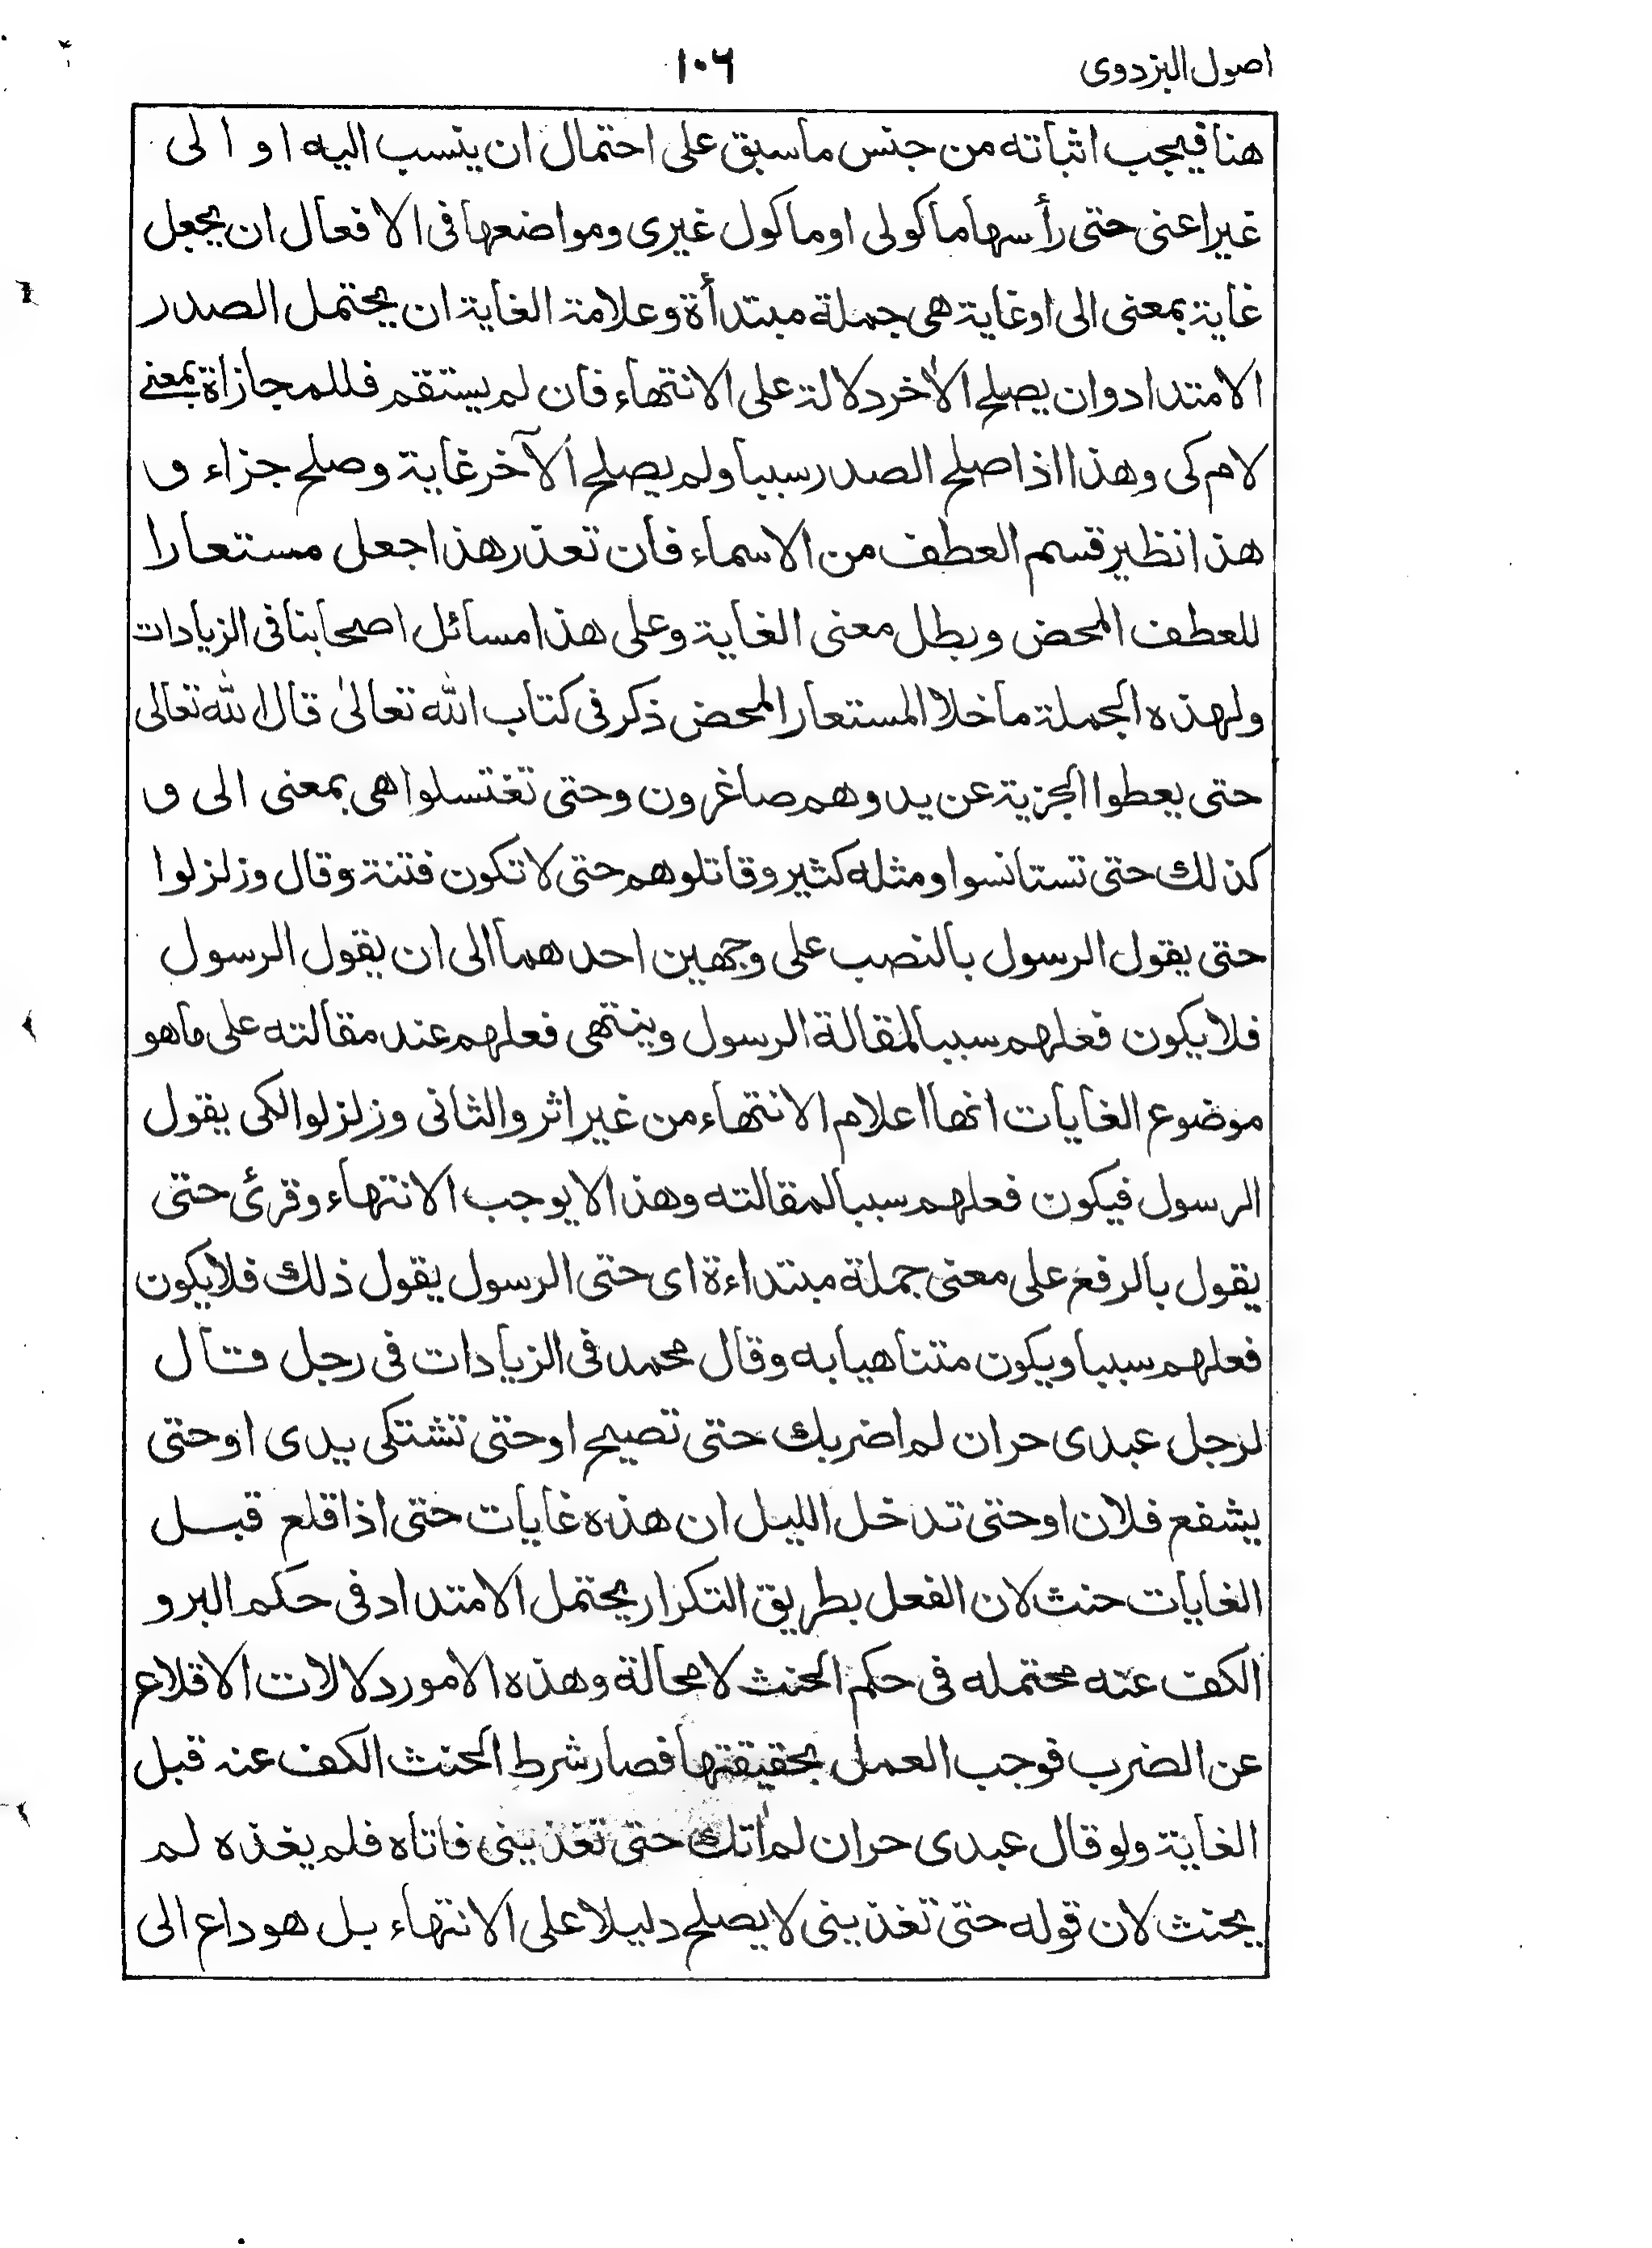 اصول البزدوی ۱۰۶
هنا فيجب اثباته من جنس ما سبق على احتمال ان ينسب اليه او الى
غيرا عنى حتى رأسها ماكولى او ماكول غيرى ومواضعها فى الافعال ان يجعل
غاية بمعنى الى او غاية هى جملة مبتدأة وعلامة الغاية ان يحتمل الصدر
الامتداد وان يصلح الأخر دلالة على الانتهاء فان لم يستقم فللمجازاة بمعنے
لام كى وهذا اذا صلح الصدر سببا ولم يصلح الآخر غاية وصلح جزاء و
هذا نظير قسم العطف من الاسماء فان تعذر هذا جعل مستعارا
للعطف المحض وبطل معنى الغاية وعلى هذا مسائل اصحابنا فى الزيادات
ولهذه الجملة ما خلا المستعار المحض ذكر فى كتاب الله تعالىٰ قال الله تعالى
حتى يعطوا الجزية عن يد وهم صاغرون وحتى تغتسلوا هى بمعنى الى و
كذلك حتى تستانسوا ومثله كثير وقاتلوهم حتى لا تكون فتنة وقال وزلزلوا
حتى يقول الرسول بالنصب على وجهين احدهما الى ان يقول الرسول
فلا يكون فعلهم سببا لمقالة الرسول وينتهى فعلهم عند مقالته على ما هو
موضوع الغايات انها اعلام الانتهاء من غير اثر والثانى وزلزلوا لكى يقول
الرسول فيكون فعلهم سببا لمقالته وهذا لا يوجب الانتهاء وقرئ حتى
يقول بالرفع على معنى جملة مبتداءة اى حتى الرسول يقول ذلك فلا يكون
فعلهم سببا ويكون متناهيا به وقال محمد فى الزيادات فى رجل قال
لرجل عبدى حر ان لم اضربك حتى تصيح او حتى تشتكى يدى او حتى
يشفع فلان او حتى تدخل الليل ان هذه غايات حتى اذا قلع قبل
الغايات حنث لان الفعل بطريق التكرار يحتمل الامتداد فى حكم البر و
الكف عنه محتمله فى حكم الحنث لا محالة وهذه الامور دلالات الاقلاع
عن الضرب فوجب العمل بحقيقتها فصار شرط الحنث الكف عنه قبل
الغاية ولو قال عبدى حر ان لم اتك حتى تغذينى فاتاه فلم يغذه لم
يحنث لان قوله حتى تغذينى لا يصلح دليلا على الانتهاء بل هو داع الى